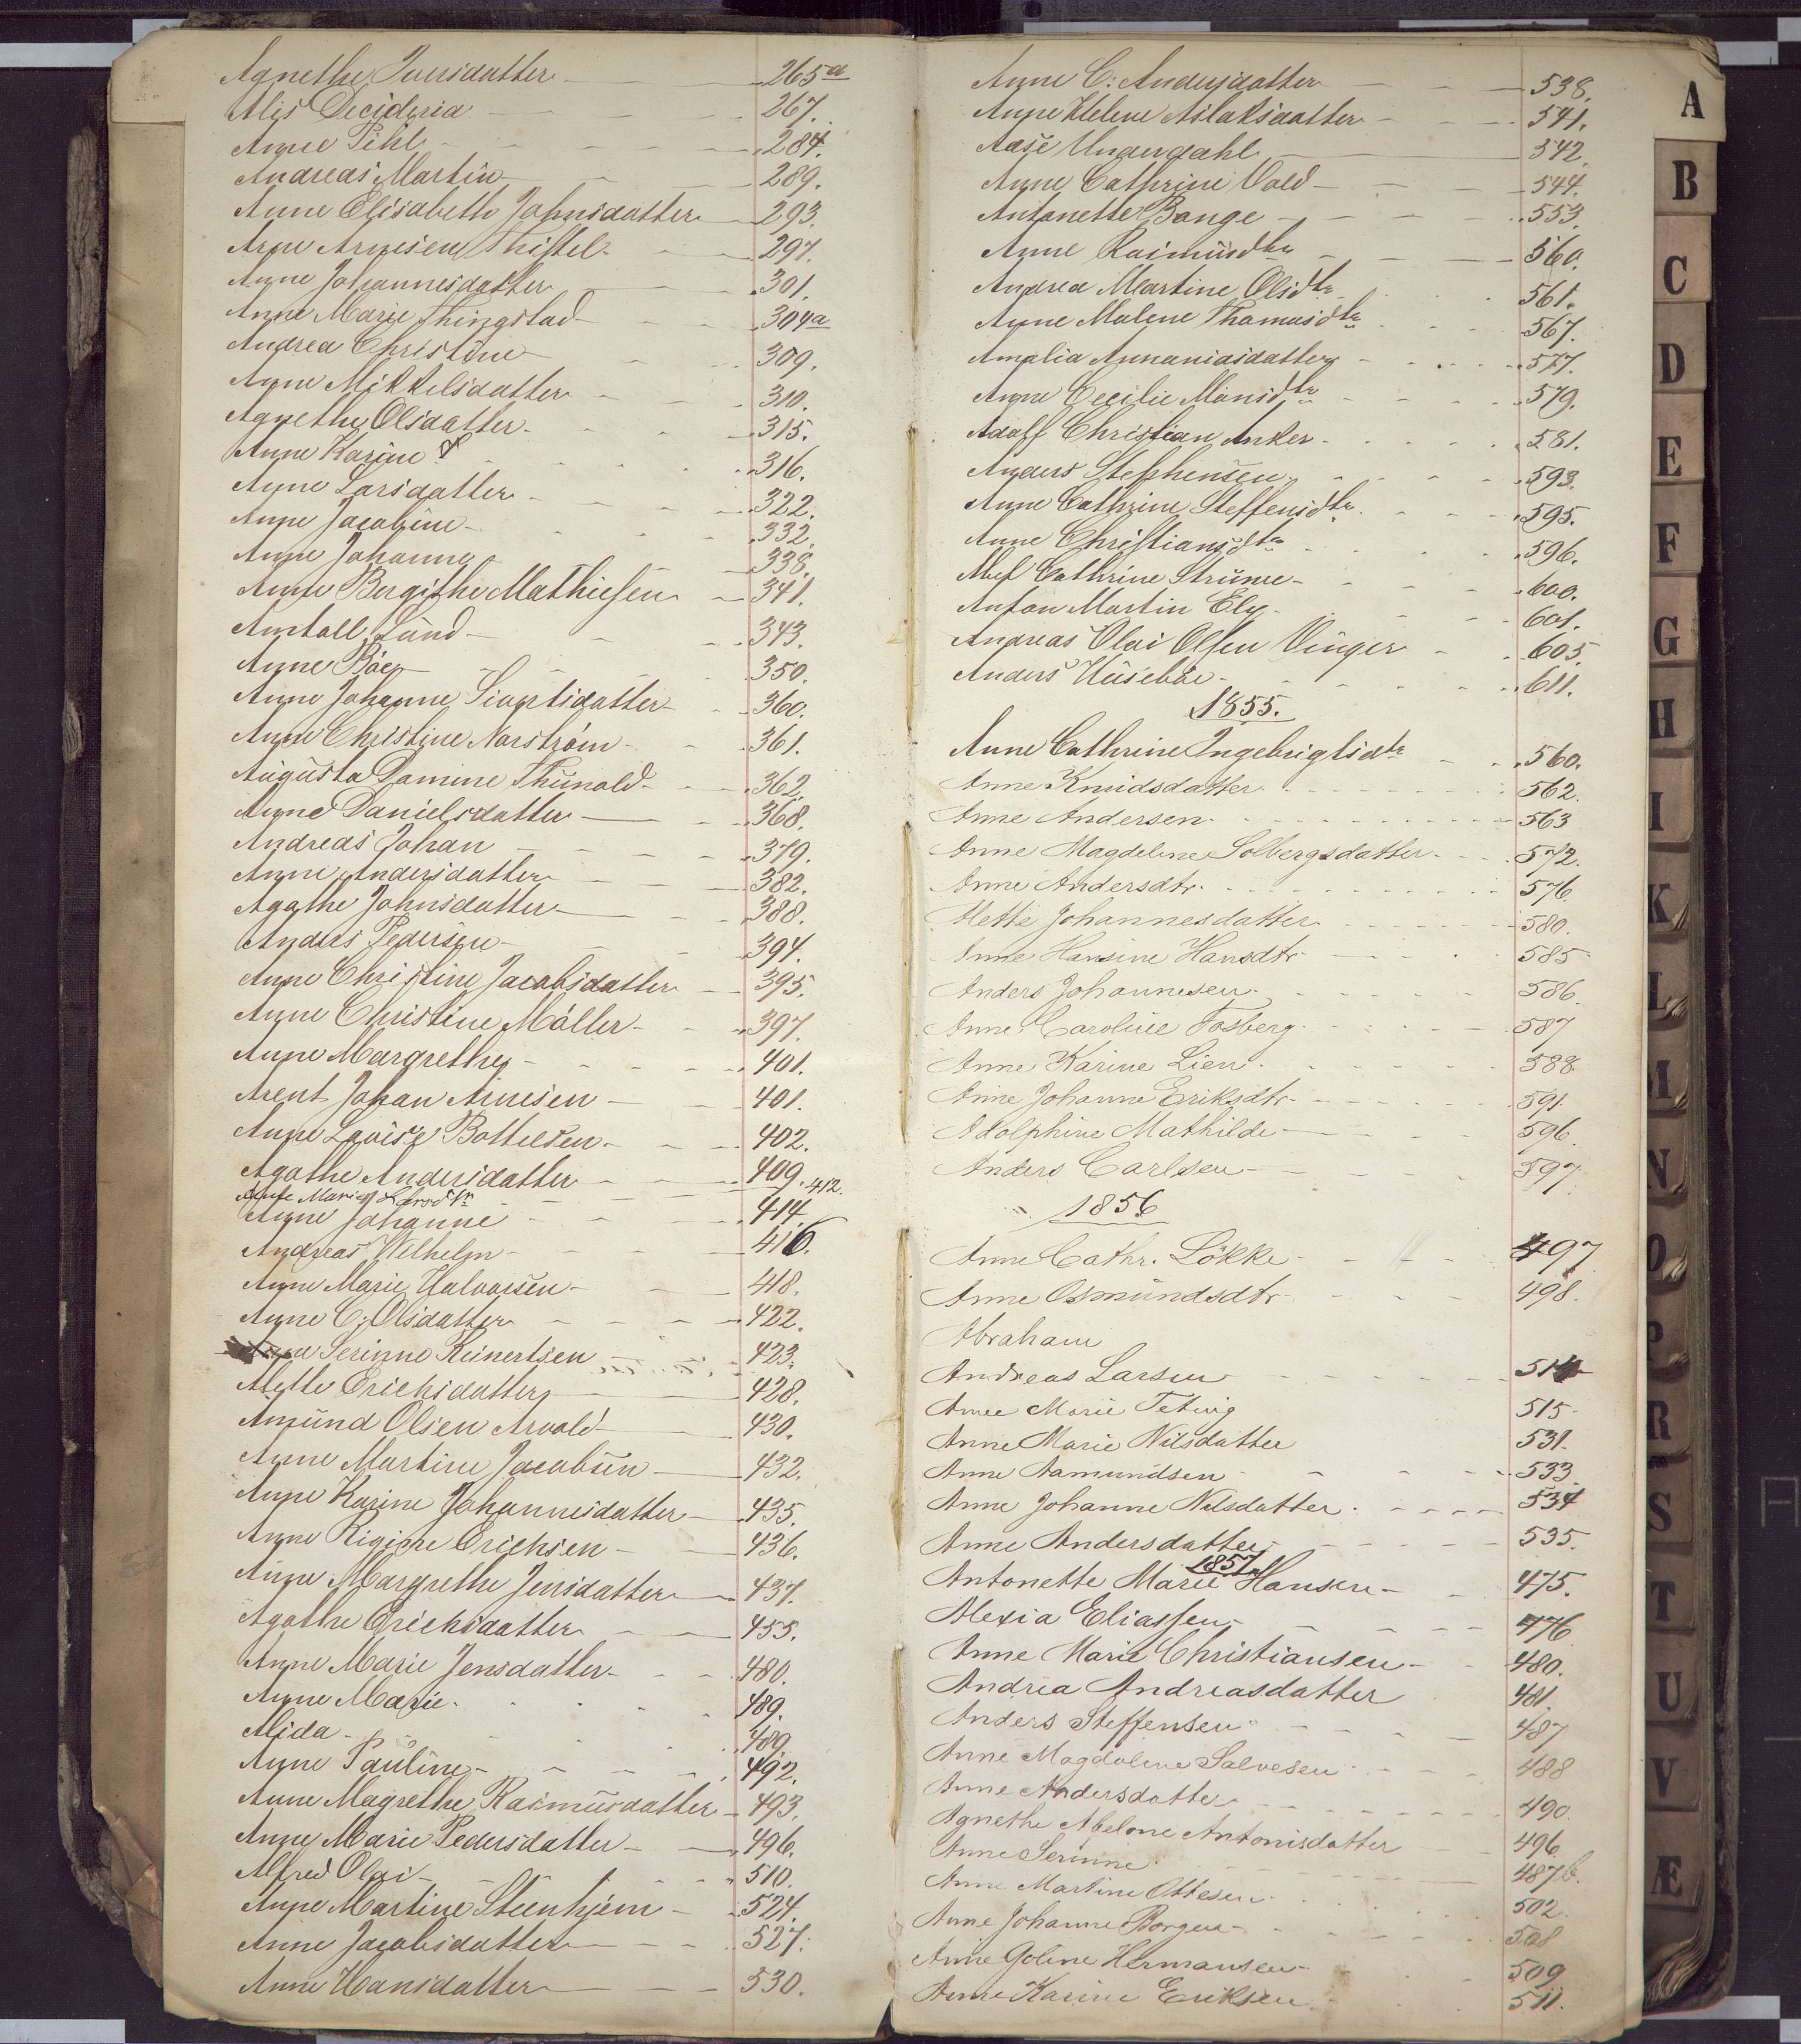 Agnethe Iversdatter 265a
Alis Decideria 267.
Anne Pihl 284.
Andreas Martin 289.
Anne Elisabeth Johnsdatter 293.
Arne Arnesen Thistel 297.
Anne Johannesdatter 301.
Anne Marie Thingstad 304a
Andrea Christine 309.
Anne Mikkelsdatter 310.
Agnethe Olsdatter 315.
Anne Karine 316.
Anne Larsdatter 322.
Anne Jacobine 332.
Anne Johanne 338.
Anne Bergithe Mathiesen 341.
Lund 343.
Anne 350.
Anne Johanne 360.
Anne Christine Norström 361.
Augusta Damine Thunold 362.
Anne Danielsdatter 368.
Andreas Johan 379.
Anne Andersdatter 382.
Agathe Johnsdatter 388.
Anders Pedersen 394.
Anne Christine Jacobsdatter 395.
Anne Christine Möller 397.
Anne Margrethe 401.
Arent Johan Arnesen 401.
Anne Lovise Bottelsen 402.
Agathe Andersdatter 409.
Anne Marie 412.
Anne Johanne 414
Andreas Wilhelm 416.
Anne Marie Halvorsen 418.
Anne C. Olsdatter 422.
Serinne Reinertsen 423.
Mette Erichsdatter 428.
Amund Olsen Arvold 430.
Anne Martine Jacobsen 432.
Anne Karine Johannesdatter 435.
Anne Rigine Erichsen 436.
Anne Margrethe Jensdatter 437.
Agathe Erichsdatter 455.
Anne Marie Jensdatter 480.
Anne Marie 489.
Alida 489.
Anne Pauline 492.
Anne Magrethe Rasmusdatter 493.
Anne Marie Pedersdatter 496.
Alfred Olai 510.
Anne Martine Steenhjem 524.
Anne Jacobsdatter 527.
Anne Hansdatter 530.
Anne C. Andersdatter 538.
Anne Helene Aslaksdatter 541.
Aase Underdahl 542.
Anne Cathrine Vold 544.
Antonette Bange 553.
Anne Rasmusdtr 560.
Andrea Martine Olsdtr 561.
Anne Malene Thomasdtr 567.
Amalia Annaniasdatter 577.
Anne Cecilie Monsdtr 579.
Adolf Christian Anker 581.
Anders Stephensen 593.
Anne Cathrine Steffensdtr 595.
Anne Christiansdtr 596.
Cathrine Strume 600.
Anton Martin Ely 601.
Andreas Olai Olsen Vinger 605.
Anders Huseböe 611.
1855.
Anne Cathrine Ingebrigtsdtr 560.
Anne Knudsdatter 562.
Anne Andersen 563
Anne Magdelene Solbergsdatter 572.
Anne Andersdtr. 576.
Mette Johannesdatter 580.
Anne Hansine Hansdtr 585
Anders Johannesen 586.
Anne Caroline Fosberg 587
Anne Karine Lien 588.
Anne Johanne Eriksdtr 591.
Adolphine Mathilde 596.
Anders Carlsen 597.
1856
Anne Cathr. Lökke 497
Anne Osmundsdtr 498.
Abraham
Andreas Larsen 514
Anne Marie Tetwig 515
Anne Marie Nilsdatter 531.
Anne Aamundsen 533
Anne Johanne Nilsdatter 534
Anne Andersdatter 535.
1857
Antonette Marie Hansen 475.
Alexia Eliassen 476
Anne Marie Christiansen 480.
Andrea Andreasdatter 481
Anders Steffensen 487
Anne Magdalene Salvesen 488
Anne Andersdatter 490.
Agnethe Abelone Antonisdatter 496
Anne Serinne 487b.
Anne Martine Ottesen 502.
Anne Johanne Borgen 508
Anne Goline Hermansen 509
Anne Karine Eriksen 511.
A
B
C
D
E
F
G
H
I
K
L
M
N
O
P
R
S
T
U
V
Æ